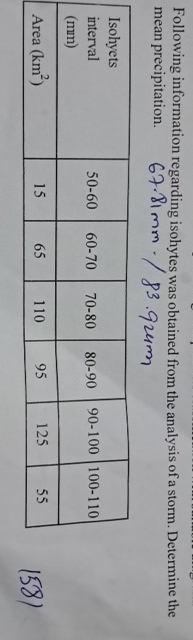 Following information regarding isohytes was obtained from the analysis of a storm. Determine the
mean precipitation.
67.81mm. / 83.92mm
Isohyets interval (mm) 50-60 60-70 70-80 80-90 90-100 100-110
Area (km²) 15 65 110 95 125 55